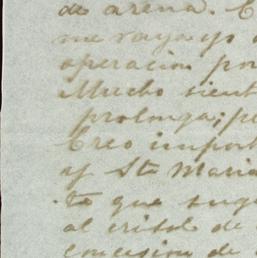 de arena. C
me vaya yo a
operacion por
Mucho sient
prolonga; pe
Creo import
y Sta Maria
to que sug
al crisol de
concesion de